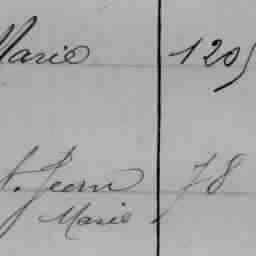 Marie 1205
t. Jean 78
Marie